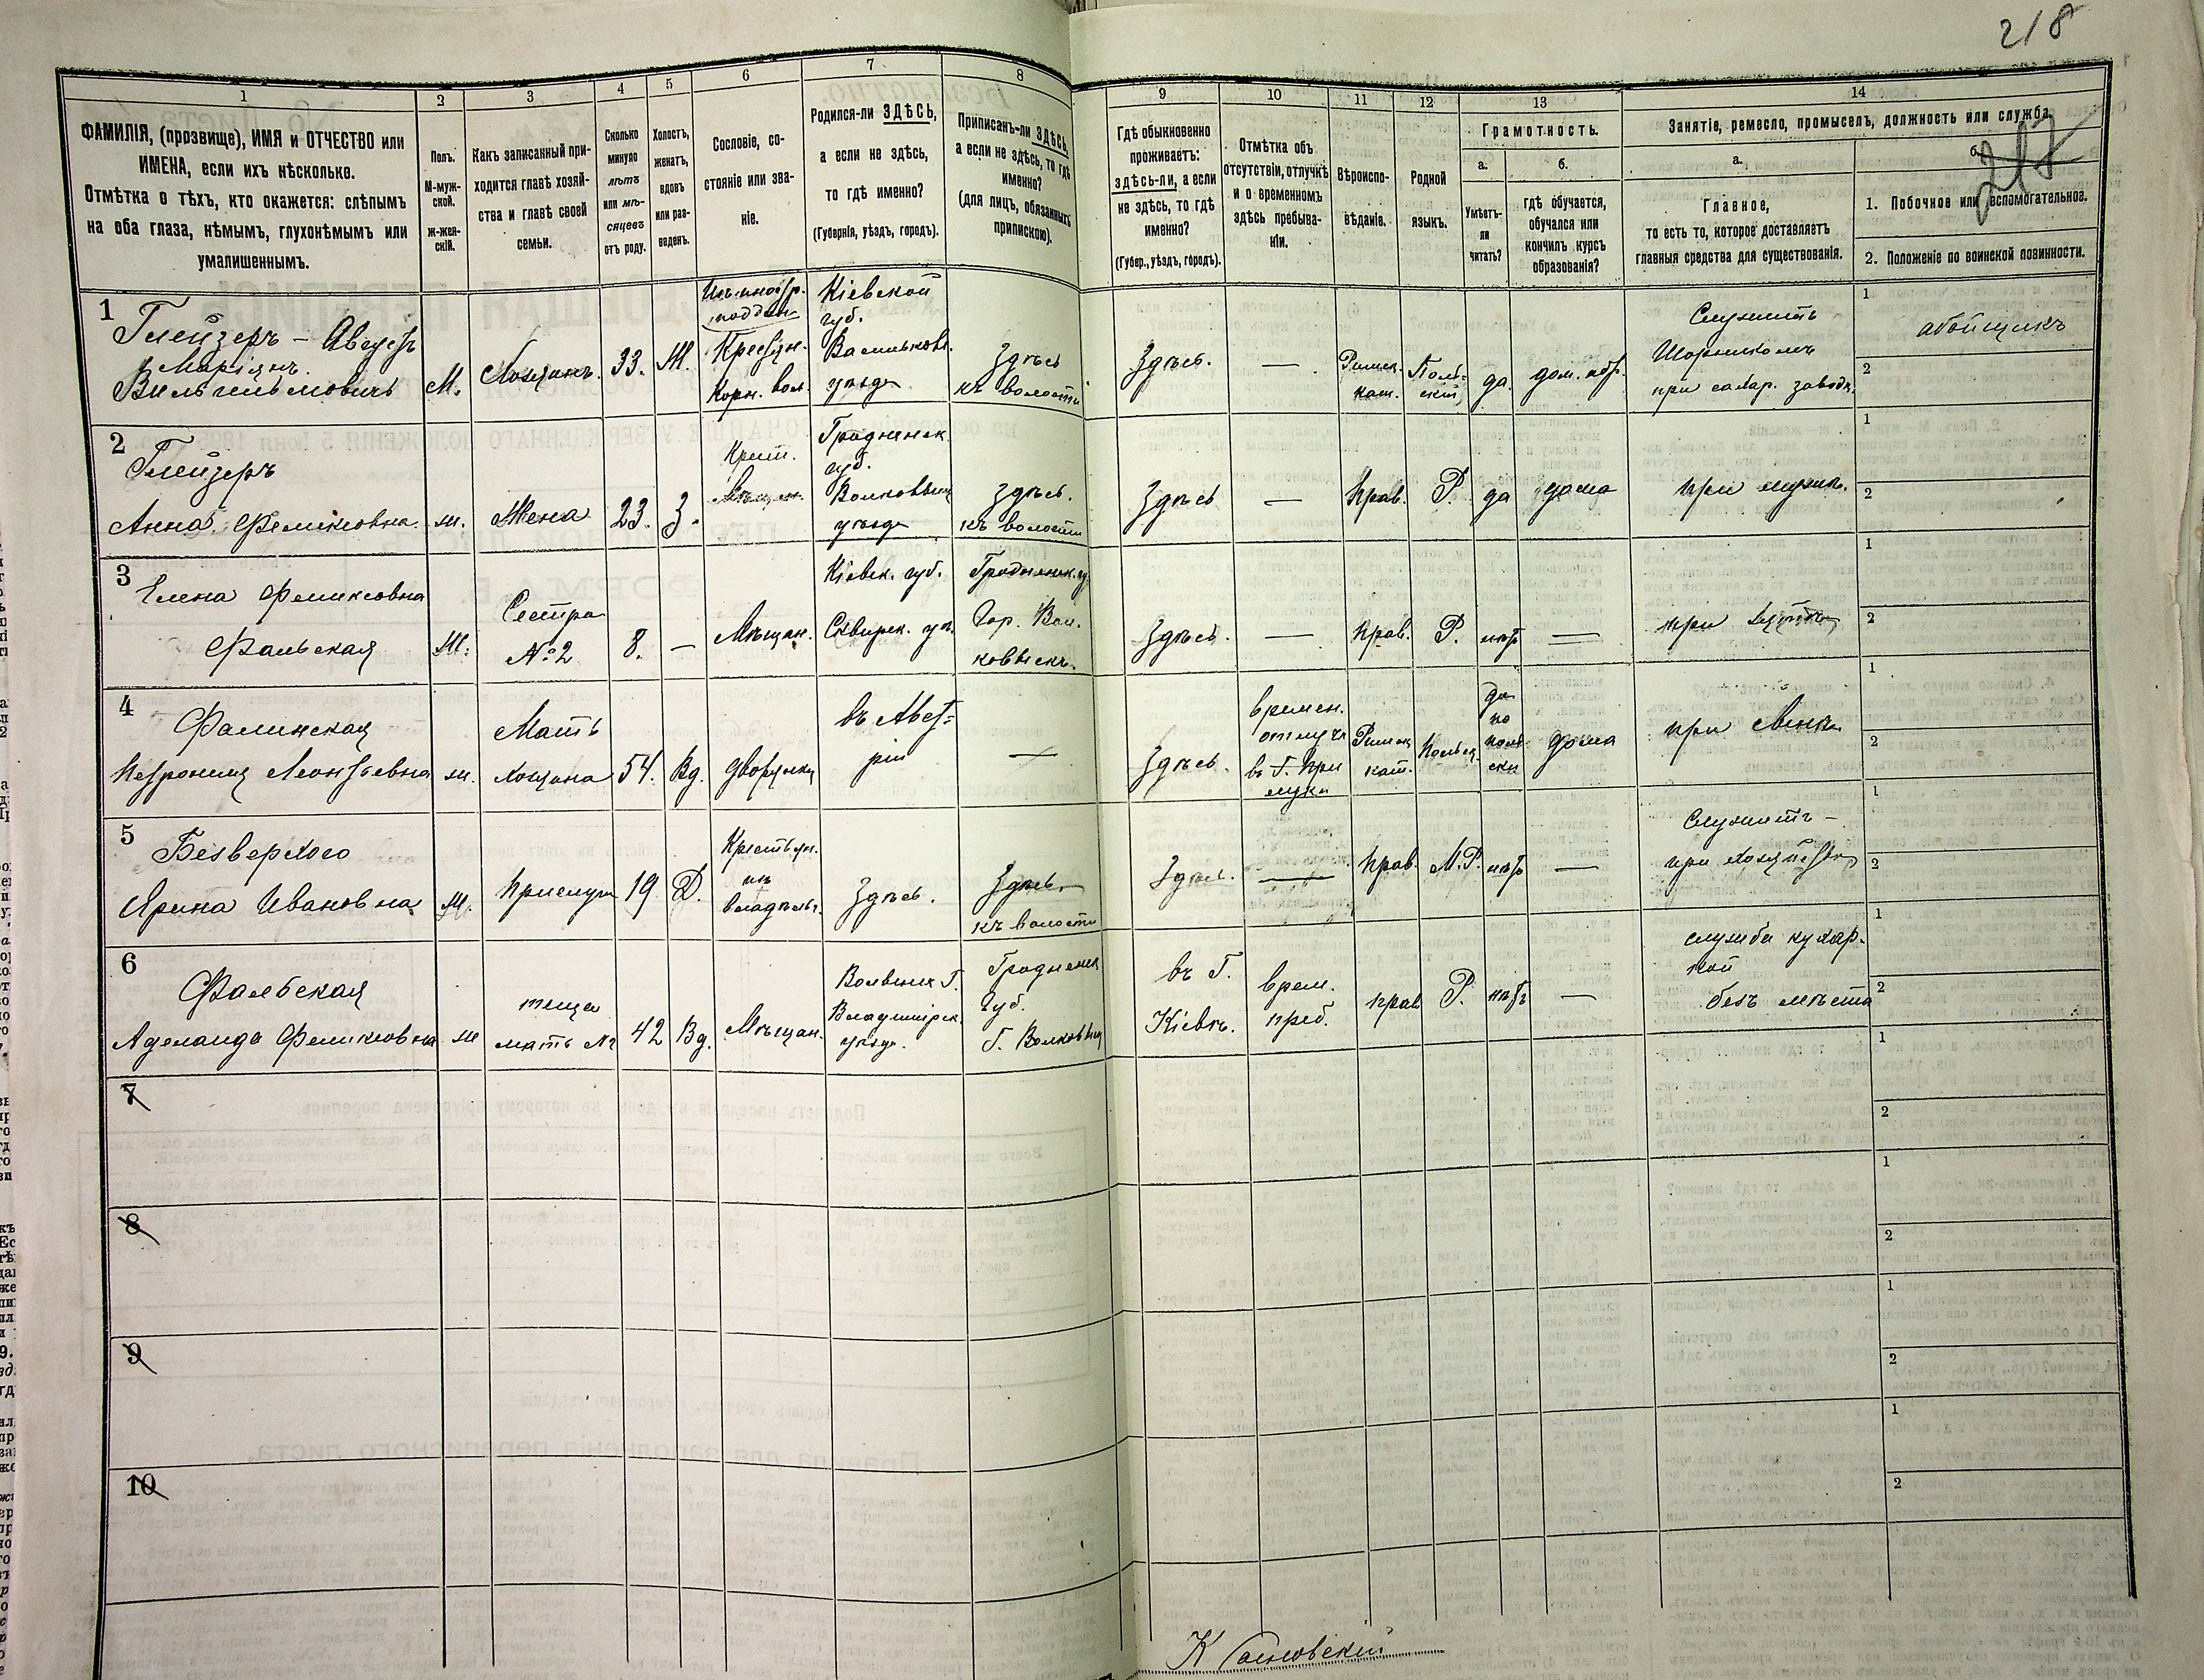 218
1
ФАМИЛІЯ, (прозвище), ИМЯ и ОТЧЕСТВО или
ИМЕНА, если ихъ нѣсколько.
Отмѣтка о тѣхъ, кто окажется: слѣпымъ
на оба глаза, нѣмымъ, глухонѣмымъ или
умалишеннымъ.
2
Полъ.
М-муж-
ской.
ж-жен-
скій.
3
Какъ записанный при-
ходится главѣ хозяй-
ства и главѣ своей
семьи.
4
Сколько
минуло
лѣтъ
или мѣ-
сяцевъ
отъ роду.
5
Холостъ,
женатъ,
вдовъ
или раз-
веденъ.
6
Сословіе, со-
стояніе или зва-
ніе.
7
Родился-ли ЗДѢСЬ,
а если не здѣсь,
то гдѣ именно?
(Губернія, уѣздъ, городъ).
8
Приписанъ-ли ЗДѢСЬ,
а если не здѣсь, то гдѣ
именно?
(для лицъ, обязанныхъ
припискою).
9
Гдѣ обыкновенно
проживаетъ:
здѣсь-ли, а если
не здѣсь, то гдѣ
именно?
(Губер., уѣздъ, городъ).
10
Отмѣтка объ
отсутствіи, отлучкѣ
и о временномъ
здѣсь пребыва-
ніи.
11
Вѣроиспо-
вѣданіе.
12
Родной
языкъ.
13
Грамотность.
а.
Умѣетъ-
ли
читать?
б.
гдѣ обучается,
обучался или
кончилъ курсъ
образованія?
14
Занятіе, ремесло, промыселъ, должность или служба.
а.
Главное,
то есть то, которое доставляетъ
главныя средства для существованія.
б.
217
1. Побочное или вспомогательное.
2. Положеніе по воинской повинности.
1
Глейзеръ -
Маріянъ
Вильгельмовичъ
М.
Хозяинъ.
33.
Ж.
Корн. вол.
Кіевской
губ.
Васильков.
уѣзда
Здѣсь
къ волости
Здѣсь.
—
Римск.
кат.
Поль-
скій
да.
дом. обр.
Служитъ
Шорникомъ
при сахар. заводѣ.
1
обойщикъ
2
2
Глейзеръ
Анна Феликсовна
ж.
Жена
23.
З.
Мѣщан.
Гродненск.
губ.
Волковыщ
уѣзда
Здѣсь.
къ волости
Здѣсь
—
Прав.
Р.
да
дома
при мужѣ.
1
2
3
Елена Феликсовна
Фальская
Ж.
Сестра
№ 2
8.
—
Мѣщан.
Кіевск. губ.
Сквирск. уѣ.
Гродненск. г.
Гор. Вол-
ковыскъ.
Здѣсь.
—
Прав.
Р.
нѣтъ
—
при
1
2
4
Фалинская
Петронія Леонтьевна
ж.
Мать
хозяина
54.
Вд.
дворянка
въ Авст-
ріи
—
Здѣсь.
времен.
отлучк
въ Г. При
луки
Римск
кат.
Польск.
да
по
поль-
ски
дома
при
1
2
5
Безверхого
Ярина Ивановна
Ж.
Прислуга
19
Д.
Крестьян.
из
владѣльч.
Здѣсь.
Здѣсь
къ волости
Здѣсь.
—
Прав.
М.Р.
нѣтъ
—
Служитъ -
при хозяйствѣ
1
2
6
Фальская
Аделаида Феликсовна
ж
теща
мать №
42
Вд.
Мѣщан.
Волынск Г.
Владимірск.
уѣзда.
Гродненск
губ.
Г. Волковыщ
въ Г.
Кіевѣ.
врем.
преб.
прав
Р.
нѣтъ
—
служба кухар-
кой
безъ мѣста
1
2
7
1
2
8
1
2
9
1
2
10
1
2